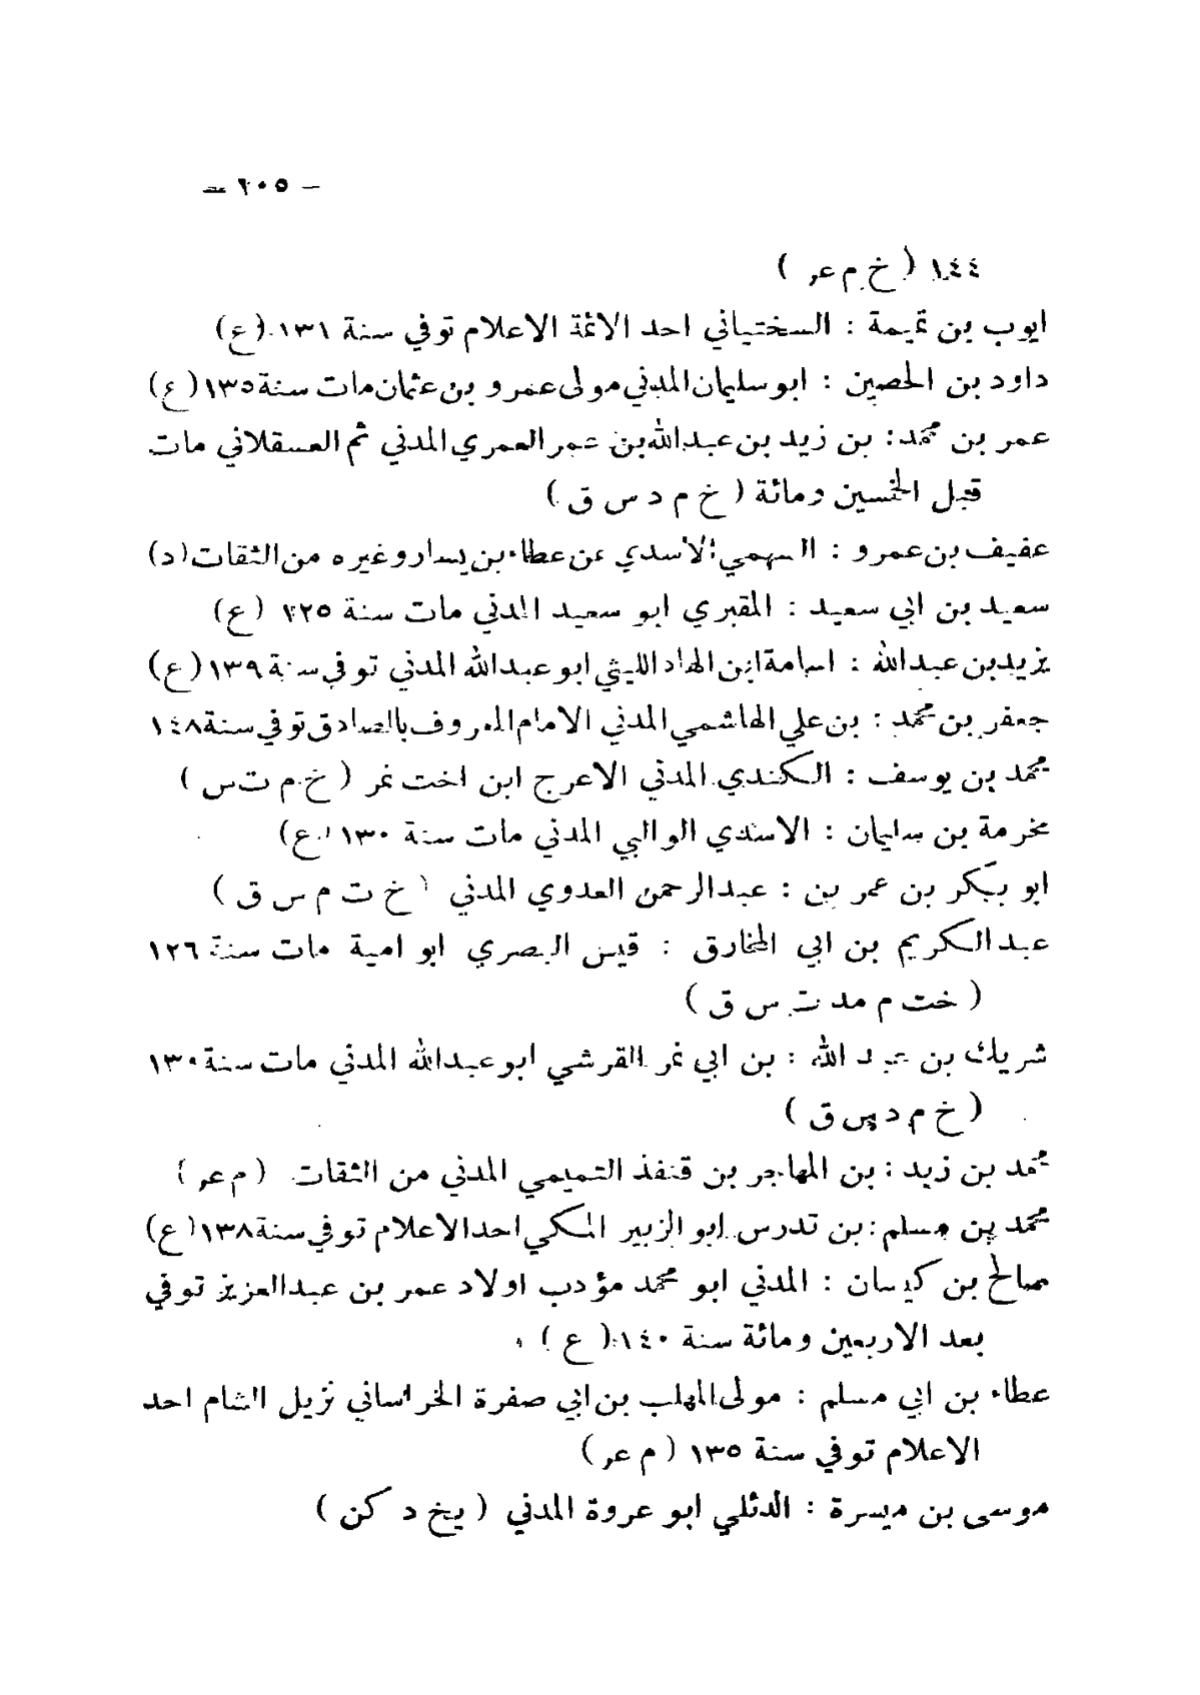 — ٢٠٥ —
١٤٤ ( خ م عر )
ايوب بن تميمة : السختياني احد الائمة الاعلام توفي سنة ١٣١ (ع)
داود بن الحصين : ابو سليمان المدني مولى عمرو بن عثمان مات سنة ١٣٥ (ع)
عمر بن محمد : بن زيد بن عبدالله بن عمر العمري المدني ثم العسقلاني مات
قبل الخمسين ومائة ( خ م د س ق )
عفيف بن عمرو : السهمي الاسدي عن عطاء بن يسار وغيره من الثقات (د)
سعيد بن ابي سعيد : المقبري ابو سعيد المدني مات سنة ١٢٥ (ع)
يزيد بن عبدالله : اسامة ابن الهاد الليثي ابو عبدالله المدني توفي سنة ١٣٩ (ع)
جعفر بن محمد : بن علي الهاشمي المدني الامام المعروف بالصادق توفي سنة ١٤٨
محمد بن يوسف : الكندي المدني الاعرج ابن اخت نمر ( خ م ت س )
مخرمة بن سليمان : الاسدي الوالبي المدني مات سنة ١٣٠ (ع)
ابو بكر بن عمر بن : عبدالرحمن العدوي المدني ( خ ت م س ق )
عبد الكريم بن ابي المخارق : قيس البصري ابو امية مات سنة ١٢٦
( خت م مد ت س ق )
شريك بن عبد الله : بن ابي نمر القرشي ابو عبدالله المدني مات سنة ١٣٠
( خ م د س ق )
محمد بن زيد : بن المهاجر بن قنفذ التميمي المدني من الثقات ( م عر )
محمد بن مسلم : بن تدرس ابو الزبير المكي احد الاعلام توفي سنة ١٣٨ (ع)
صالح بن كيسان : المدني ابو محمد مؤدب اولاد عمر بن عبدالعزيز توفي
بعد الاربعين ومائة سنة ١٤٠ ( ع )
عطاء بن ابي مسلم : مولى المهلب بن ابي صفرة الخراساني نزيل الشام احد
الاعلام توفي سنة ١٣٥ ( م عر )
موسى بن ميسرة : الدئلي ابو عروة المدني ( يخ د كن )